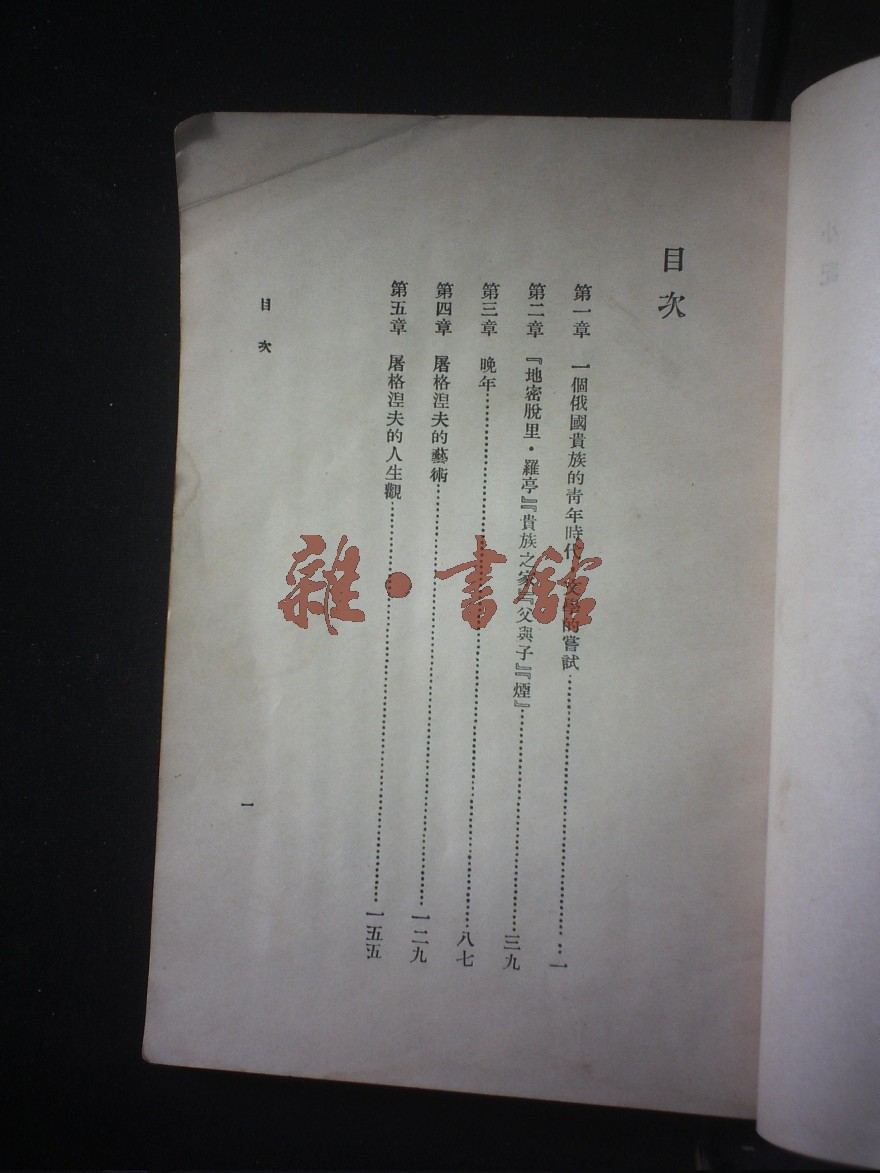 目次
第一章 一個俄國貴族的靑年時代 文學的嘗試……一
第二章 『地密脫里·羅亭』『貴族之家』『父與子』『煙』……三九
第三章 晚年……八七
第四章 屠格湼夫的藝術……一二九
第五章 屠格湼夫的人生觀……一五五
目次
一
雜·書館